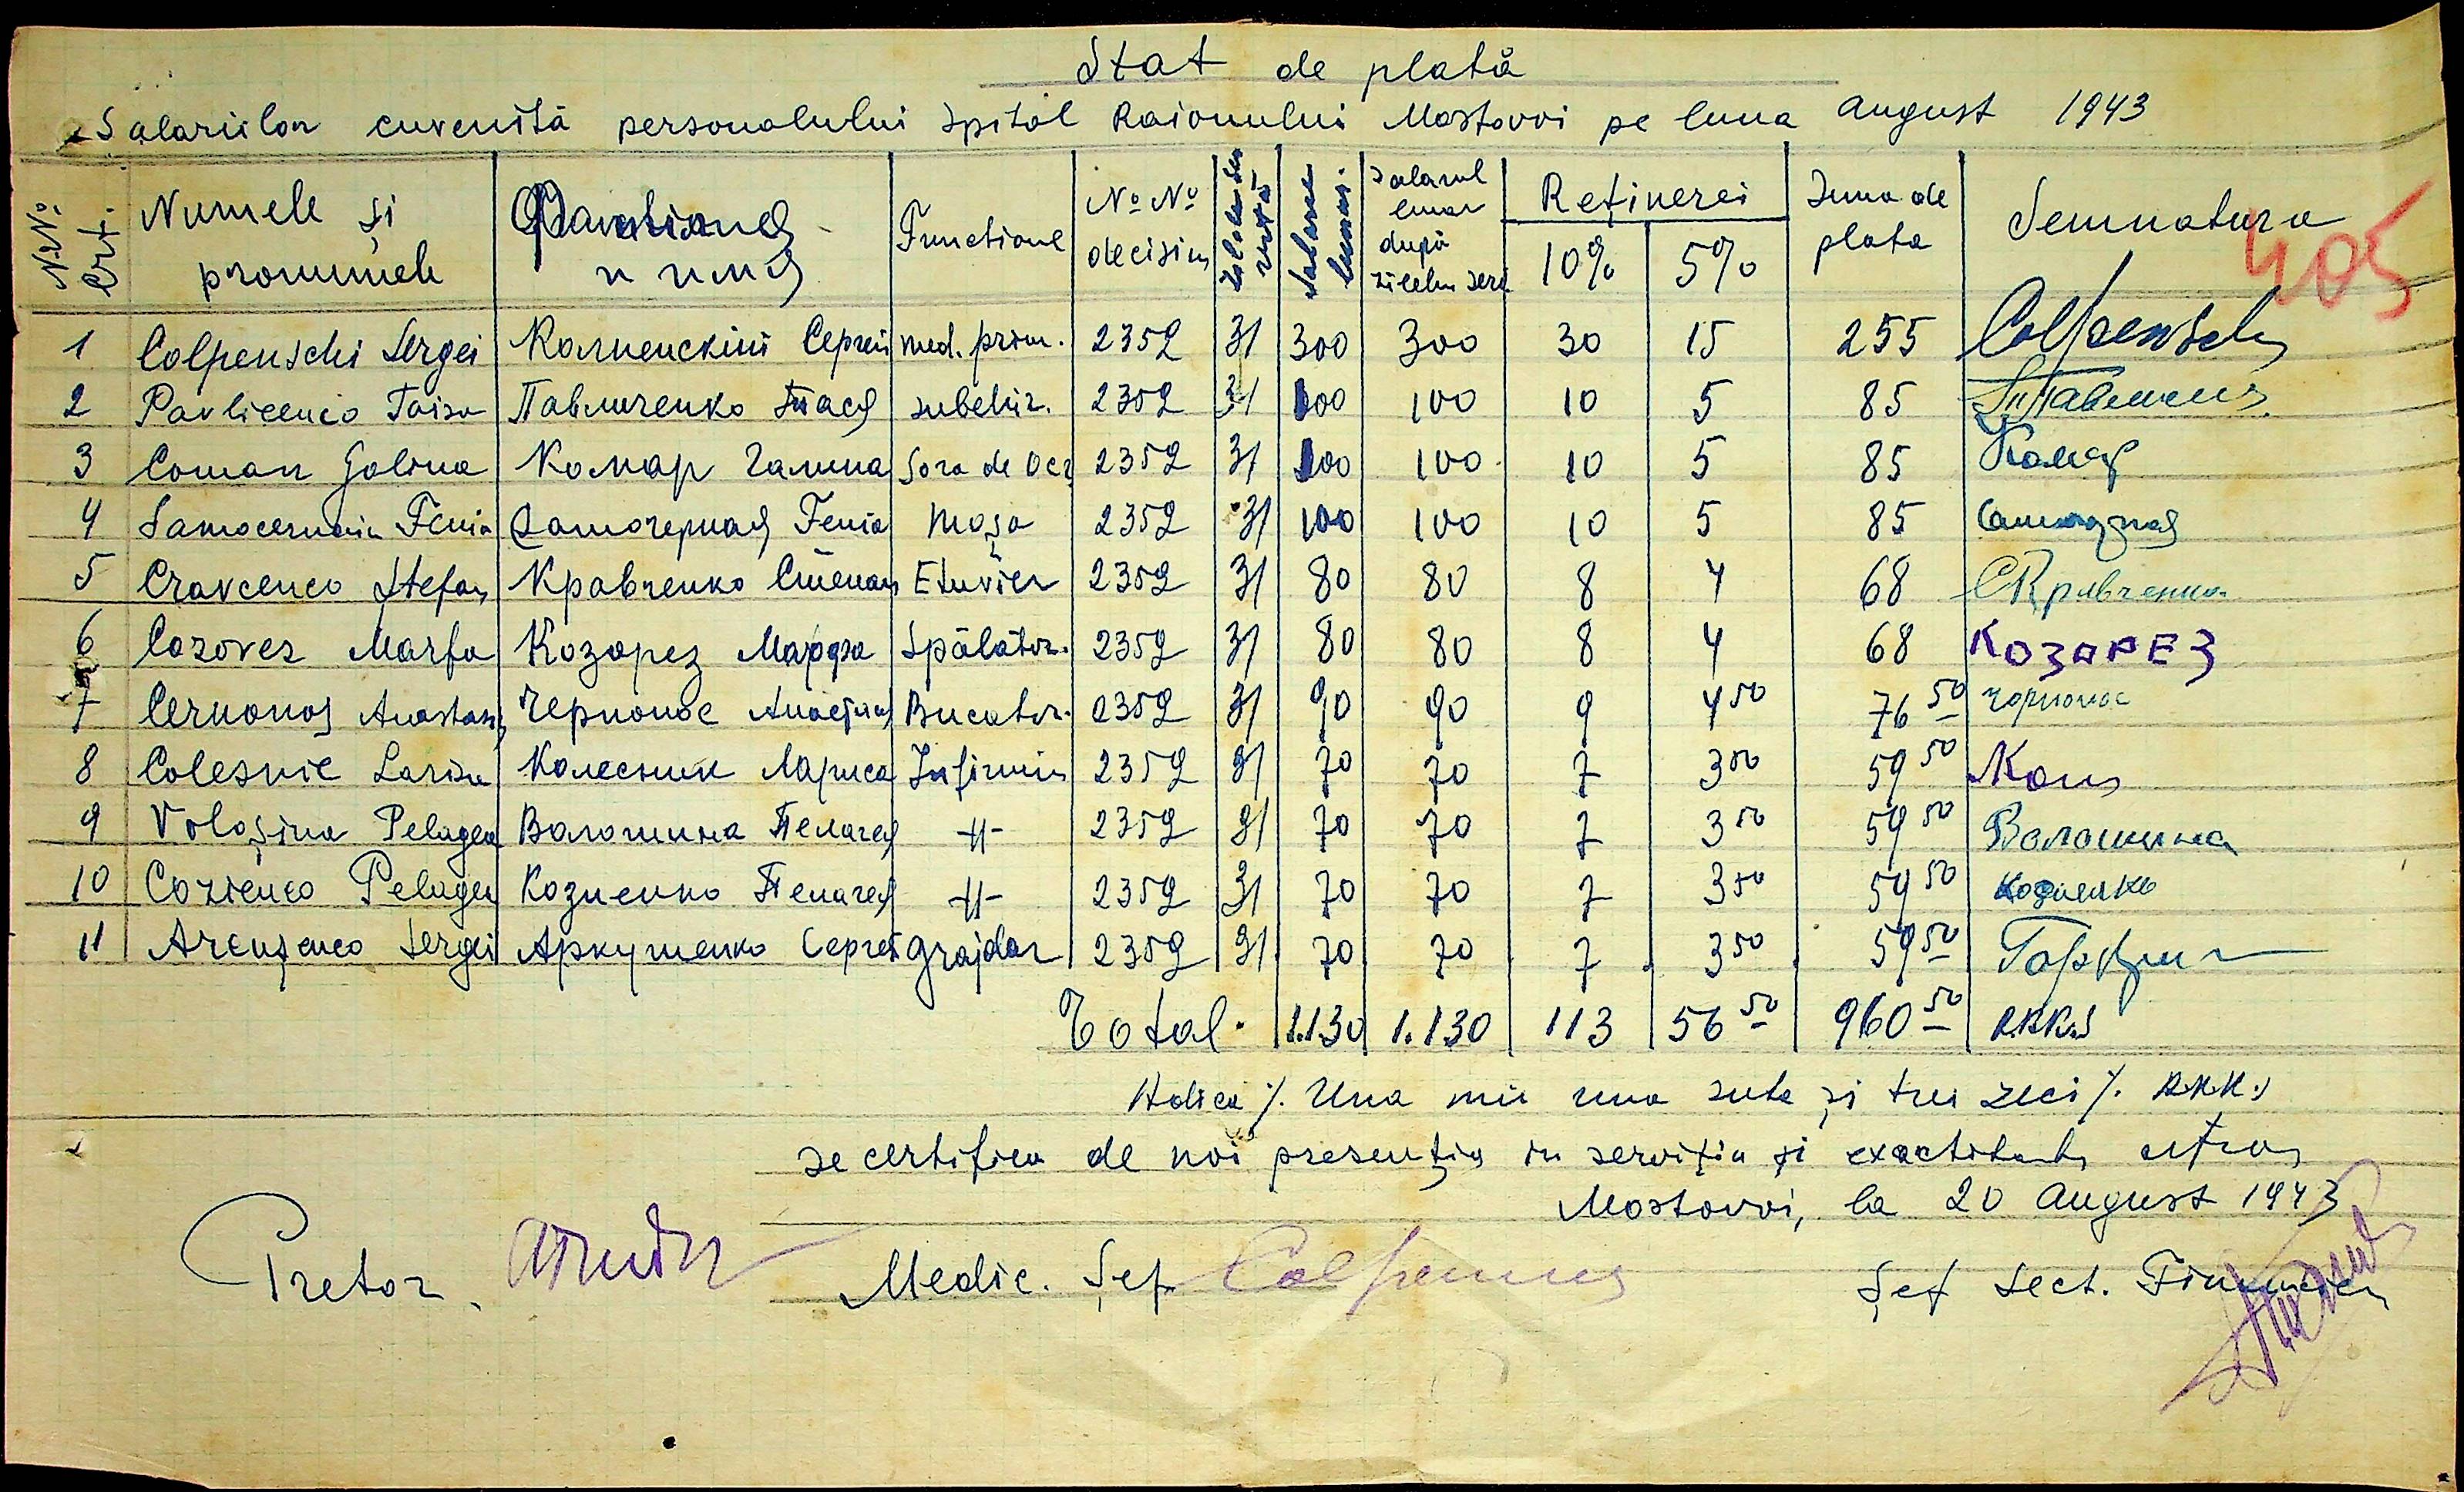 Stat de plată
Salariilor cuvenită personalului Spital Raionului Mostovoi pe luna August 1943
№№ Crt. Numele și pronumele Фамилия и имя Functione №№ decisiu Salarul lunar. Salarul lunar după zilelor serv Rețineri 10% 5% Suma de plata Semnatura
405
1 Colpenschi Sergei Колпенский Сергей med. prim. 2352 31 300 300 30 15 255 Colpenschi
2 Pavlicenco Taisa Павличенко Тася subchir. 2352 31 100 100 10 5 85
3 Comar Galina Комар Галина Sora de Ocr 2352 31 100 100 10 5 85 Комар
4 Samocernaia Fenia Самочерная Feniа Moșa 2352 31 100 100 10 5 85
5 Cravcenco Ștefan Кравченко Степан Etuvier 2352 31 80 80 8 4 68 СКравченко
6 Cozorez Marfa Козорез Марфа Spălător. 2352 31 80 80 8 4 68 КОЗОРЕЗ
7 Cernonos Anastasi Чернонос Анастас Bucator. 2352 31 90 90 9 4 50 76 50 Чорнонос
8 Colesnic Larisa Колесник Лариса Infirmie 2352 31 70 70 7 3 50 59 50 Кол
9 Voloșina Pelagea Волошина Пелагея -//- 2352 31 70 70 7 3 50 59 50 Волошина
10 Cozienco Pelagea Козиенко Пелагея -//- 2352 31 70 70 7 3 50 59 50 Козиенко
11 Arcușenco Sergei Аркушенко Сергей Grajdar 2352 31 70 70 7 3 50 59 50
Total. 1.130 1.130 113 56 50 960 50 RKKS
Adica /. Una mie una suta și trei zeci /. RKK.S
se certifica de noi presenția in serviția și exactitate
Mostovoi, la 20 August 1943
Pretor. Medic. Șef Șef Sect. Financiar